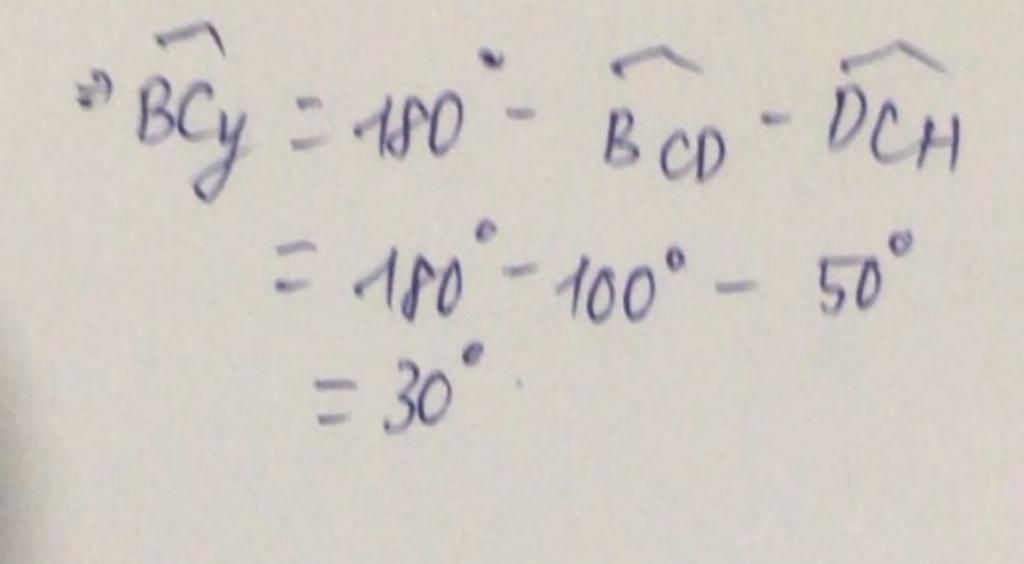 ⇒ \widehat{BCy} = 180° - \widehat{BCD} - \widehat{DCH}
= 180° - 100° - 50°
= 30°